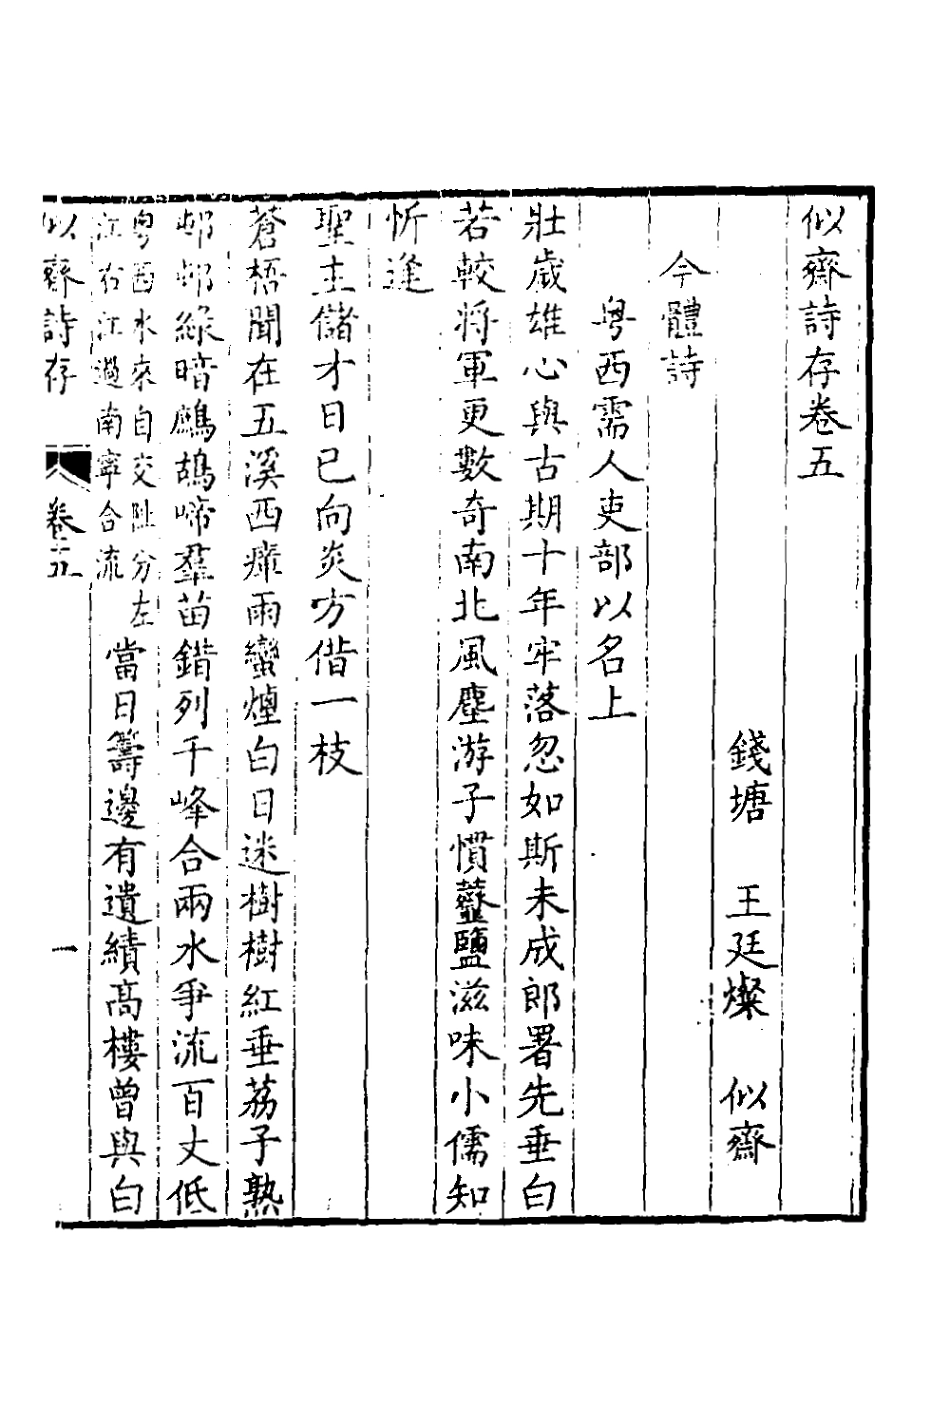 似齋詩存卷五
錢塘　王廷燦　似齋
今體詩
粤西需人吏部以名上
壯歲雄心與古期十年牢落忽如斯未成郎署先垂白
若較將軍更數奇南北風塵游子慣虀鹽滋味小儒知
忻逢
聖主儲才日已向炎方借一枝
蒼梧聞在五溪西瘴雨蠻煙白日迷樹樹紅垂荔子熟
邨邨綠暗鷓鴣啼羣苗錯列千峰合兩水爭流百丈低
粤西水來自交趾分左
江右江過南寧合流
當日籌邊有遺績高樓曾與白
似齋詩存
卷五
一